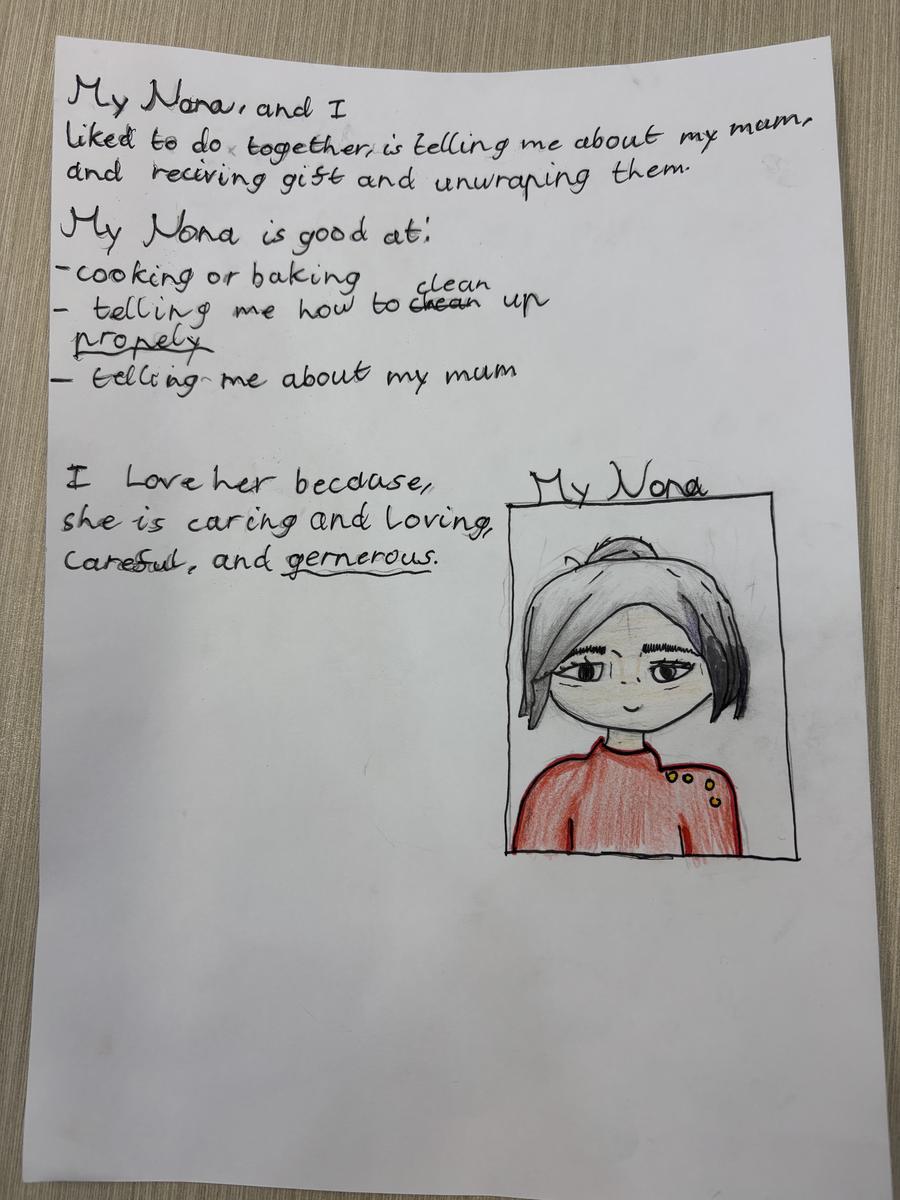 My Nona, and I
liked to do together, is telling me about my mum,
and reciving gift and unwraping them.
My Nona is good at:
- cooking or baking
clean
- telling me how to clean up
propely
- telling me about my mum
I Love her becduse,
she is caring and Loving,
careful, and gernerous.
My Nona